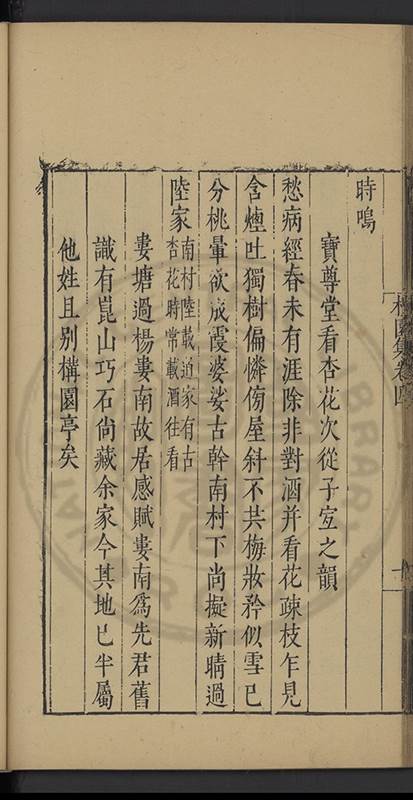 時鳴
寶尊堂看杏花次從子宜之韻
愁病經春未有涯除非對酒并看花疎枝乍見
含煙吐獨樹偏憐傍屋斜不共梅妝矜似雪已
分桃暈欲成霞婆娑古幹南村下尚擬新晴過
陸家南村陸載道家有古
杏花時常載酒往看
婁塘過楊婁南故居感賦婁南爲先君舊
識有崑山巧石尚藏余家今其地已半屬
他姓且別構園亭矣